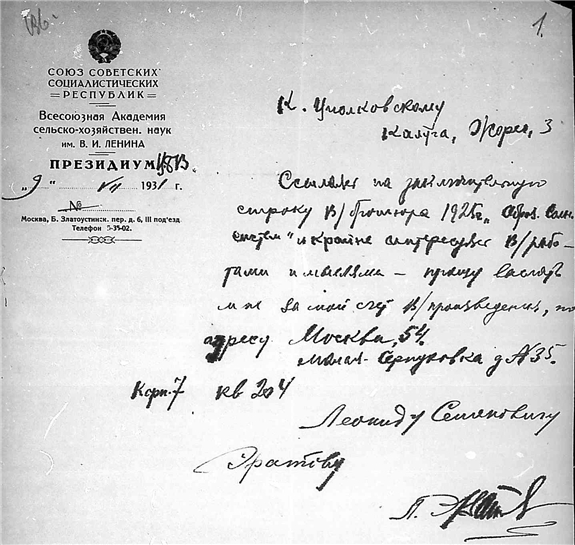 1.
СОЮЗ СОВЕТСКИХ
СОЦИАЛИСТИЧЕСКИХ
РЕСПУБЛИК
Всесоюзная Академия
сельско-хозяйствен. наук
им. В. И. ЛЕНИНА
ПРЕЗИДИУМ
"9" VII 1931 г.
№
Москва, Б. Златоустинск. пер. д. 6, III под'езд
Телефон 5-35-02.
К. Циолковскому
Калуга, Жорес, 3
Ссылаясь на заключительную
строку В/ брошюра 1925г. „Образ. Солн.
систем" и крайне интересуясь В/ рабо-
тами и мыслями — прошу выслать
мне за мой счет В/ произведения, по
адресу Москва, 54.
Малая Серпуховка д № 35.
Корп. 7 кв 204
Леониду Семеновичу
Эратову
Л.